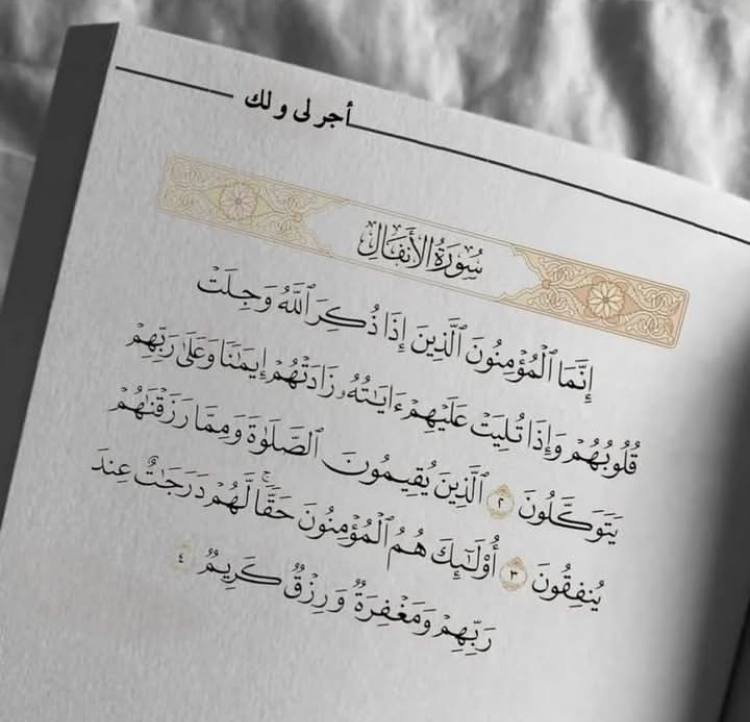 أجر لى و لك
سُورَةُ الأَنفَالِ
إِنَّمَا ٱلْمُؤْمِنُونَ ٱلَّذِينَ إِذَا ذُكِرَ ٱللَّهُ وَجِلَتْ
قُلُوبُهُمْ وَإِذَا تُلِيَتْ عَلَيْهِمْ ءَايَٰتُهُۥ زَادَتْهُمْ إِيمَٰنًا وَعَلَىٰ رَبِّهِمْ
يَتَوَكَّلُونَ ٢ ٱلَّذِينَ يُقِيمُونَ ٱلصَّلَوٰةَ وَمِمَّا رَزَقْنَٰهُمْ
يُنفِقُونَ ٣ أُوْلَٰٓئِكَ هُمُ ٱلْمُؤْمِنُونَ حَقًّا ۚ لَّهُمْ دَرَجَٰتٌ عِندَ
رَبِّهِمْ وَمَغْفِرَةٌ وَرِزْقٌ كَرِيمٌ ٤